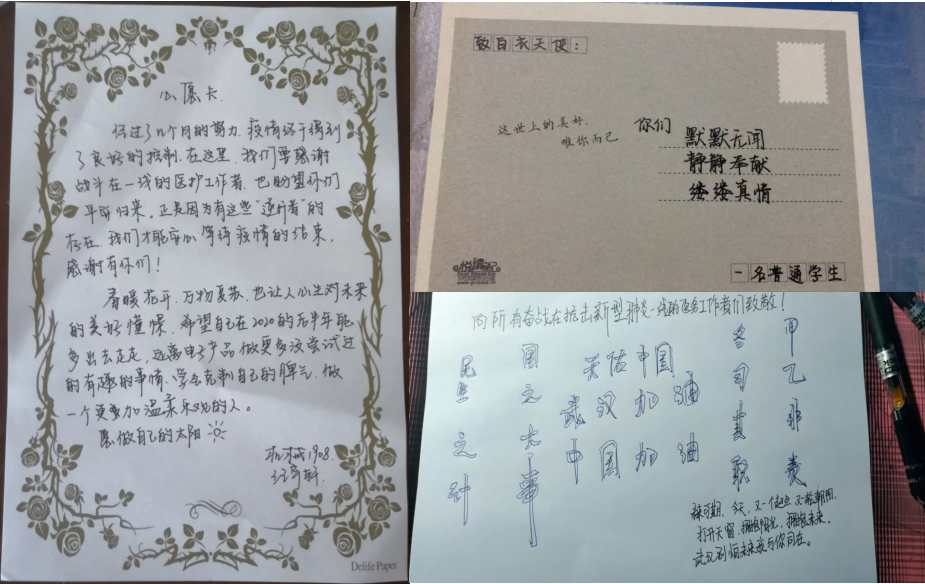 心愿卡
经过了几个月的努力,疫情终于得到
了良好的控制.在这里,我们要感谢
战斗在一线的医护工作者,也盼望你们
平安归来,正是因为有这些“逆行者”的
存在,我们才能安心等待疫情的结束,
感谢有你们!
春暖花开,万物复苏,也让人心生对未来
的美好憧憬.希望自己在2020的后半年能
多出去走走,远离电子产品做更多没尝试过
的有趣的事情,学会克制自己的脾气,做
一个更加温柔乐观的人。
愿做自己的太阳
机械1908.
Delife Paper
致白衣天使:
这世上的美好,
唯你而已
你们
默默无闻
静静奉献
缕缕真情
一名普通学生
向所有奋战在抗击新型肺炎一线的医务工作者们致敬!
甲乙非类
各司其职
关隘中国
武汉加油
中国加油
国之大事
之计
今天,又一个起点又一轮朝阳,
打开天窗,拥抱阳光,拥抱未来,
武汉别怕未来我与你同在。